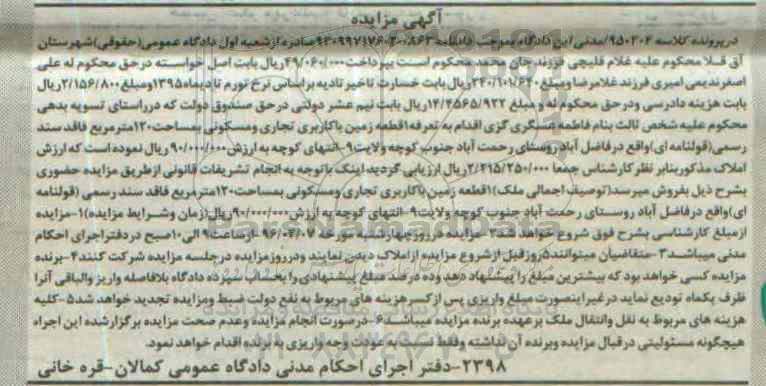 آگهی مزایده
در پرونده کلاسه ۹۵۰۲۰۴/مدنی این دادگاه بموجب دادنامه صادره از شعبه اول دادگاه عمومی(حقوقی)شهرستان
آق قلا محکوم علیه غلام قلیچی فرزند جان محمد محکوم است بپرداخت ۴۹/۰۶۰/۰۰۰ریال بابت اصل خواسته در حق محکوم له علی
اصغر ندیمی امیری فرزند غلامرضا ومبلغ ۲۴۰/۱۰۱/۶۴۰ریال بابت خسارت تاخیر تادیه براساس نرخ تورم تا دیماه۱۳۹۵ومبلغ ۲/۱۵۶/۸۰۰ریال
بابت هزینه دادرسی ودر حق محکوم له و مبلغ ۱۴/۴۵۶۵/۹۲۲ریال بابت نیم عشر دولتی در حق صندوق دولت که در راستای تسویه بدهی
محکوم علیه شخص ثالث بنام فاطمه عسگری گزی اقدام به تعرفه ۱قطعه زمین باکاربری تجاری ومسکونی بمساحت۱۲۰مترمربع فاقد سند
رسمی(قولنامه ای)واقع در فاضل آباد روستای رحمت آباد جنوب کوچه ولایت۹-انتهای کوچه به ارزش ۹۰/۰۰۰/۰۰۰ریال نموده است که ارزش
املاک مذکور بنابر نظر کارشناس جمعا ۲/۲۱۵/۲۵۰/۰۰۰ریال ارزیابی گردید اینک باتوجه به انجام تشریفات قانونی از طریق مزایده حضوری
بشرح ذیل بفروش میرسد(توصیف اجمالی ملک)۱قطعه زمین باکاربری تجاری ومسکونی بمساحت۱۲۰مترمربع فاقد سند رسمی (قولنامه
ای)واقع در فاضل آباد روستای رحمت آباد جنوب کوچه ولایت۹-انتهای کوچه به ارزش ۹۰/۰۰۰/۰۰۰ریال(زمان وشرایط مزایده)۱-مزایده
از مبلغ کارشناسی بشرح فوق شروع خواهد شد۲-مزایده در روز چهارشنبه مورخه ۹۶/۰۳/۰۷ازساعت۹الی۱۰صبح در دفتر اجرای احکام
مدنی میباشد۳-متقاضیان میتوانند۵روز قبل از شروع مزایده از املاک دیدن نمایند ودر روز مزایده در جلسه مزایده شرکت کنند۴-برنده
مزایده کسی خواهد بود که بیشترین مبلغ را پیشنهاد دهد وده درصد مبلغ پیشنهادی را بحساب سپرده دادگاه بلافاصله واریز والباقی آنرا
ظرف یکماه تودیع نماید در غیر اینصورت مبلغ واریزی پس از کسر هزینه های مربوط به نفع دولت ضبط ومزایده تجدید خواهد شد۵-کلیه
هزینه های مربوط به نقل وانتقال ملک برعهده برنده مزایده میباشد۶-در صورت انجام مزایده وعدم صحت مزایده برگزار شده این اجراء
هیچگونه مسئولیتی در قبال مزایده وبرنده آن نداشته وفقط نسبت به عودت وجه واریزی به برنده اقدام خواهد نمود.
۲۳۹۸-دفتر اجرای احکام مدنی دادگاه عمومی کمالان-قره خانی